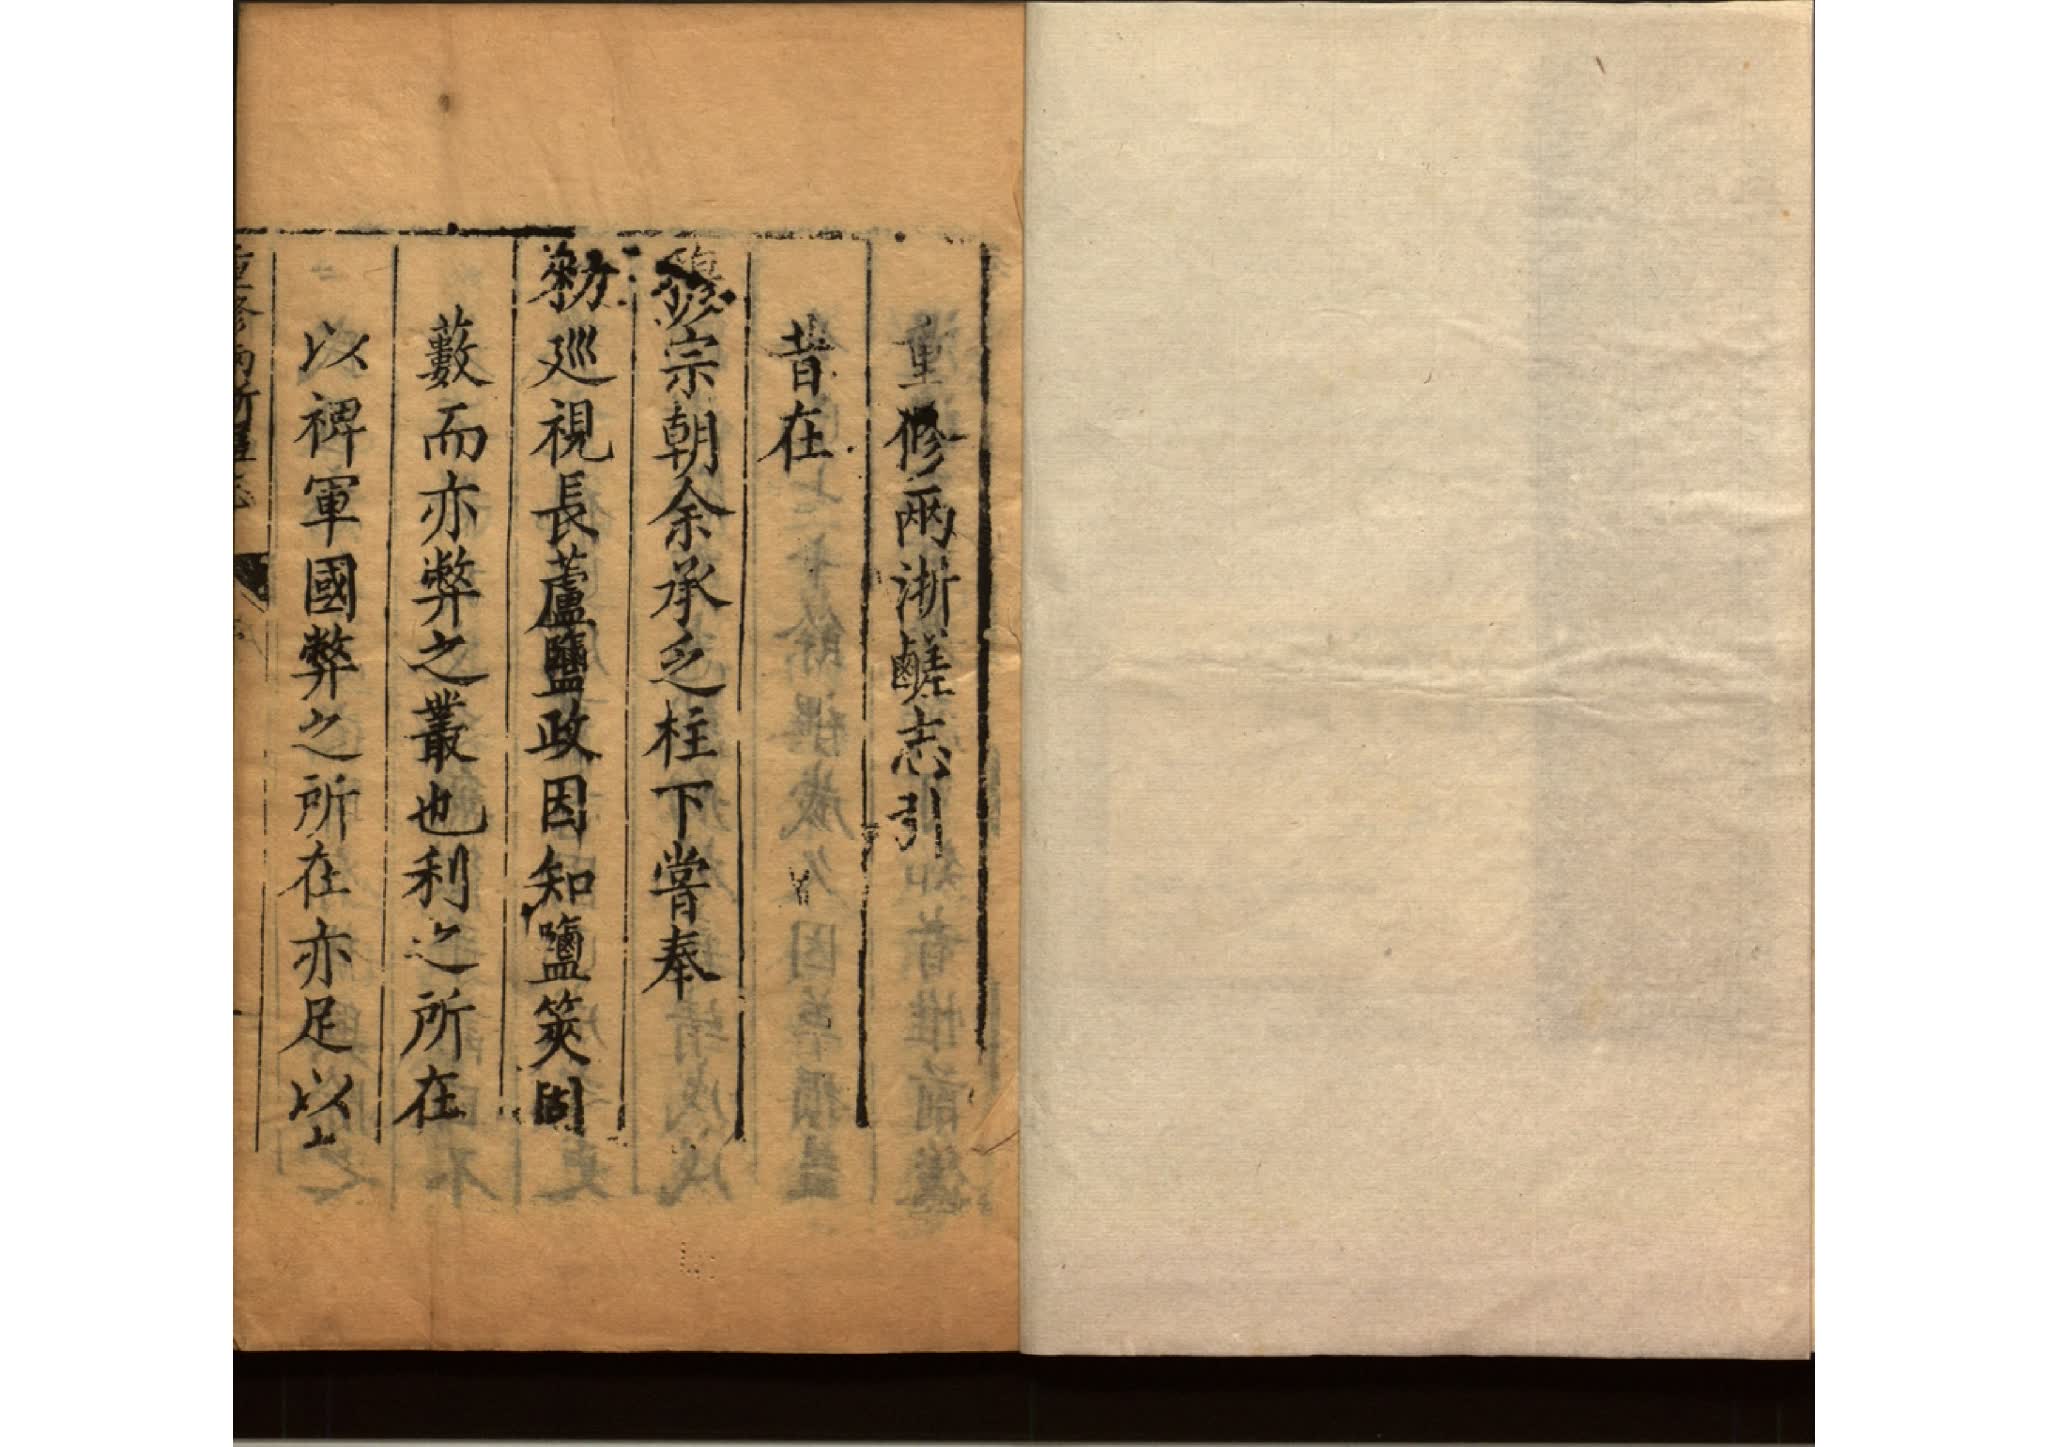 重修兩浙鹺志引
昔在
穆宗朝余承乏柱下嘗奉
勑巡視長蘆鹽政因知鹽筴固利
藪而亦弊之叢也利之所在
以裨軍國弊之所在亦足以
重修兩浙鹺志